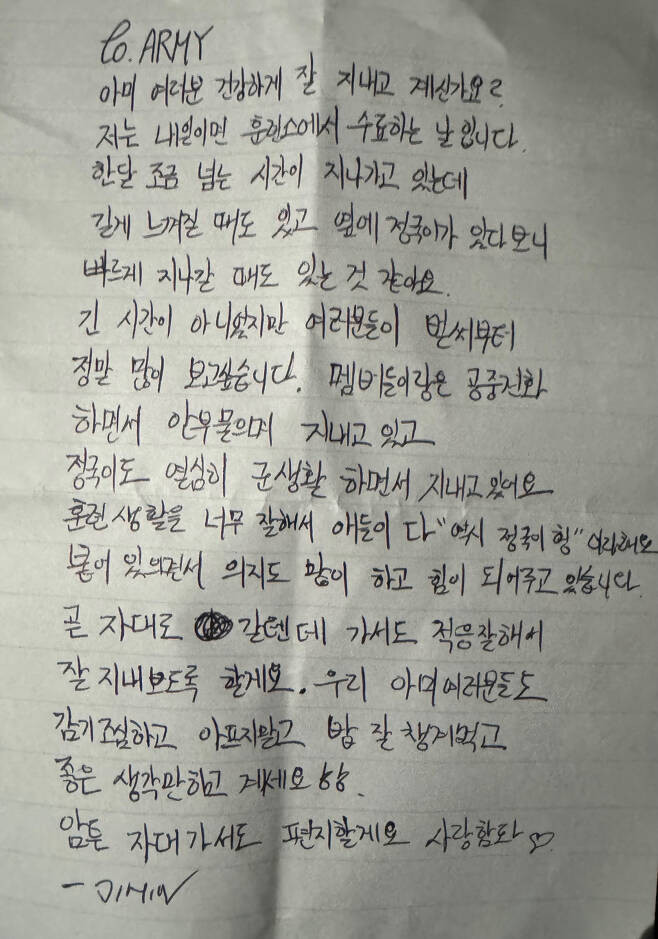 to. ARMY
아미 여러분 건강하게 잘 지내고 계신가요?
저는 내일이면 훈련소에서 수료하는 날 입니다.
한달 조금 넘는 시간이 지나가고 있는데
길게 느껴질 때도 있고 옆에 정국이가 있다보니
빠르게 지나갈 때도 있는 것 같아요.
긴 시간이 아니였지만 여러분들이 벌써부터
정말 많이 보고싶습니다. 멤버들이랑은 공중전화
하면서 안부물으며 지내고 있고
정국이도 열심히 군생활 하면서 지내고 있어요
훈련 생활을 너무 잘해서 애들이 다 "역시 정국이 형" 이라해요
붙어 있으면서 의지도 많이 하고 힘이 되어주고 있습니다.
곧 자대로 갈텐데 가서도 적응잘해서
잘 지내보도록 할게요. 우리 아미여러분들도
감기조심하고 아프지말고 밥 잘 챙겨먹고
좋은 생각만하고 계세요 ㅎㅎ.
암튼 자대가서도 편지할게요 사랑함돠 ♡
- JIMIN